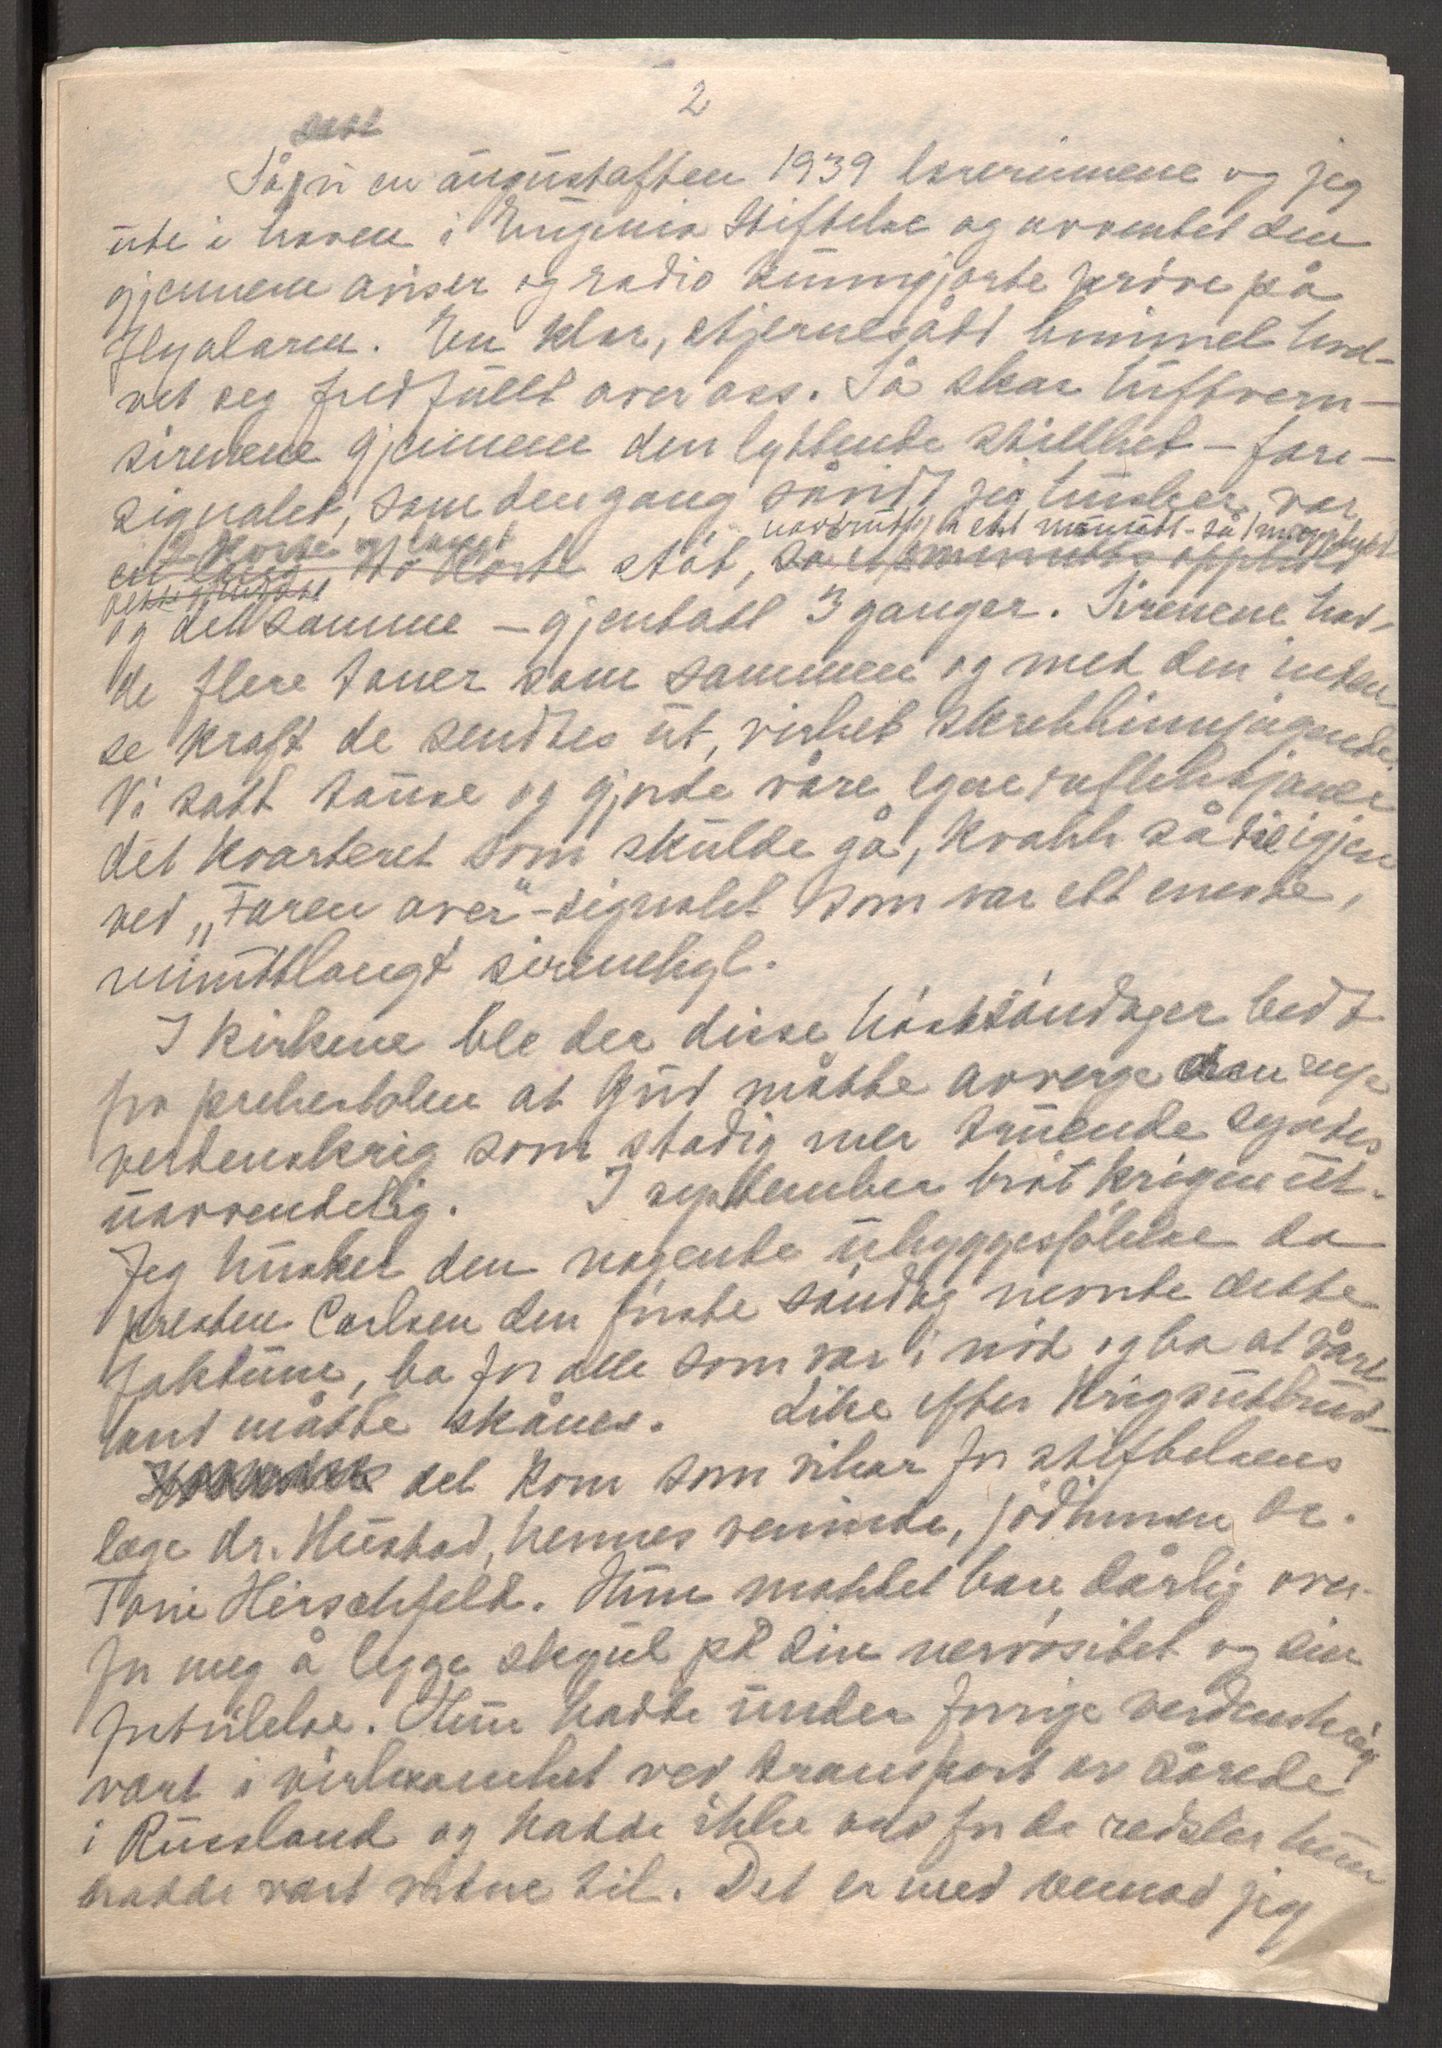 2
satt
Så vi en augustaften 1939 lærerinnene og jeg
ute i haven i Eugenia Stiftelse og avventet den
gjennem aviser og radio kunngjorte prøve på
flyalarm. En klar, stjernesådd himmel hvel-
vet seg fredfullt over oss. Så skar luftvern-
sirenene gjennem den lyttende stillhet – fare-
signalet, som dengang såvidt jeg husker, var
2 korte og langt
støt, så minutts opphold
og det samme – gjentatt 3 ganger. Sirenene had-
de flere toner som sammen og med den inten
se kraft de sendtes ut, virket skrekkinnjagende.
Vi satt tause og gjorde våre egne refleksjoner
det kvarteret som skulde gå, kvakk så til igjen
ved „Faren over"-signalet som var ett eneste,
minuttlangt sirenehyl.
I kirkene ble der disse høstsøndager bedt
fra prekestolen at Gud måtte avverge den nye
verdenskrig som stadig mer truende syntes
uavvendelig. I september brøt krigen ut.
Jeg husker den nagende uhyggesfølelse da
presten Carlsen den første søndag nevnte dette
faktum, ba for alle som var i nød og ba at vårt
land måtte skånes. Like efter krigsutbrud-
det kom som vikar for stiftelsens
læge dr. Hustad, hennes veninde, jødinnen dr.
Toni Hirschfeld. Hun maktet bare dårlig over-
for meg å legge skjul på sin nervøsitet og sin
fortvilelse. Hun hadde under forrige verdenskrig
vært i virksomhet ved transport av sårede
i Russland og hadde ikke ord for de redsler hun
hadde vært vitne til. Det er med vemod jeg